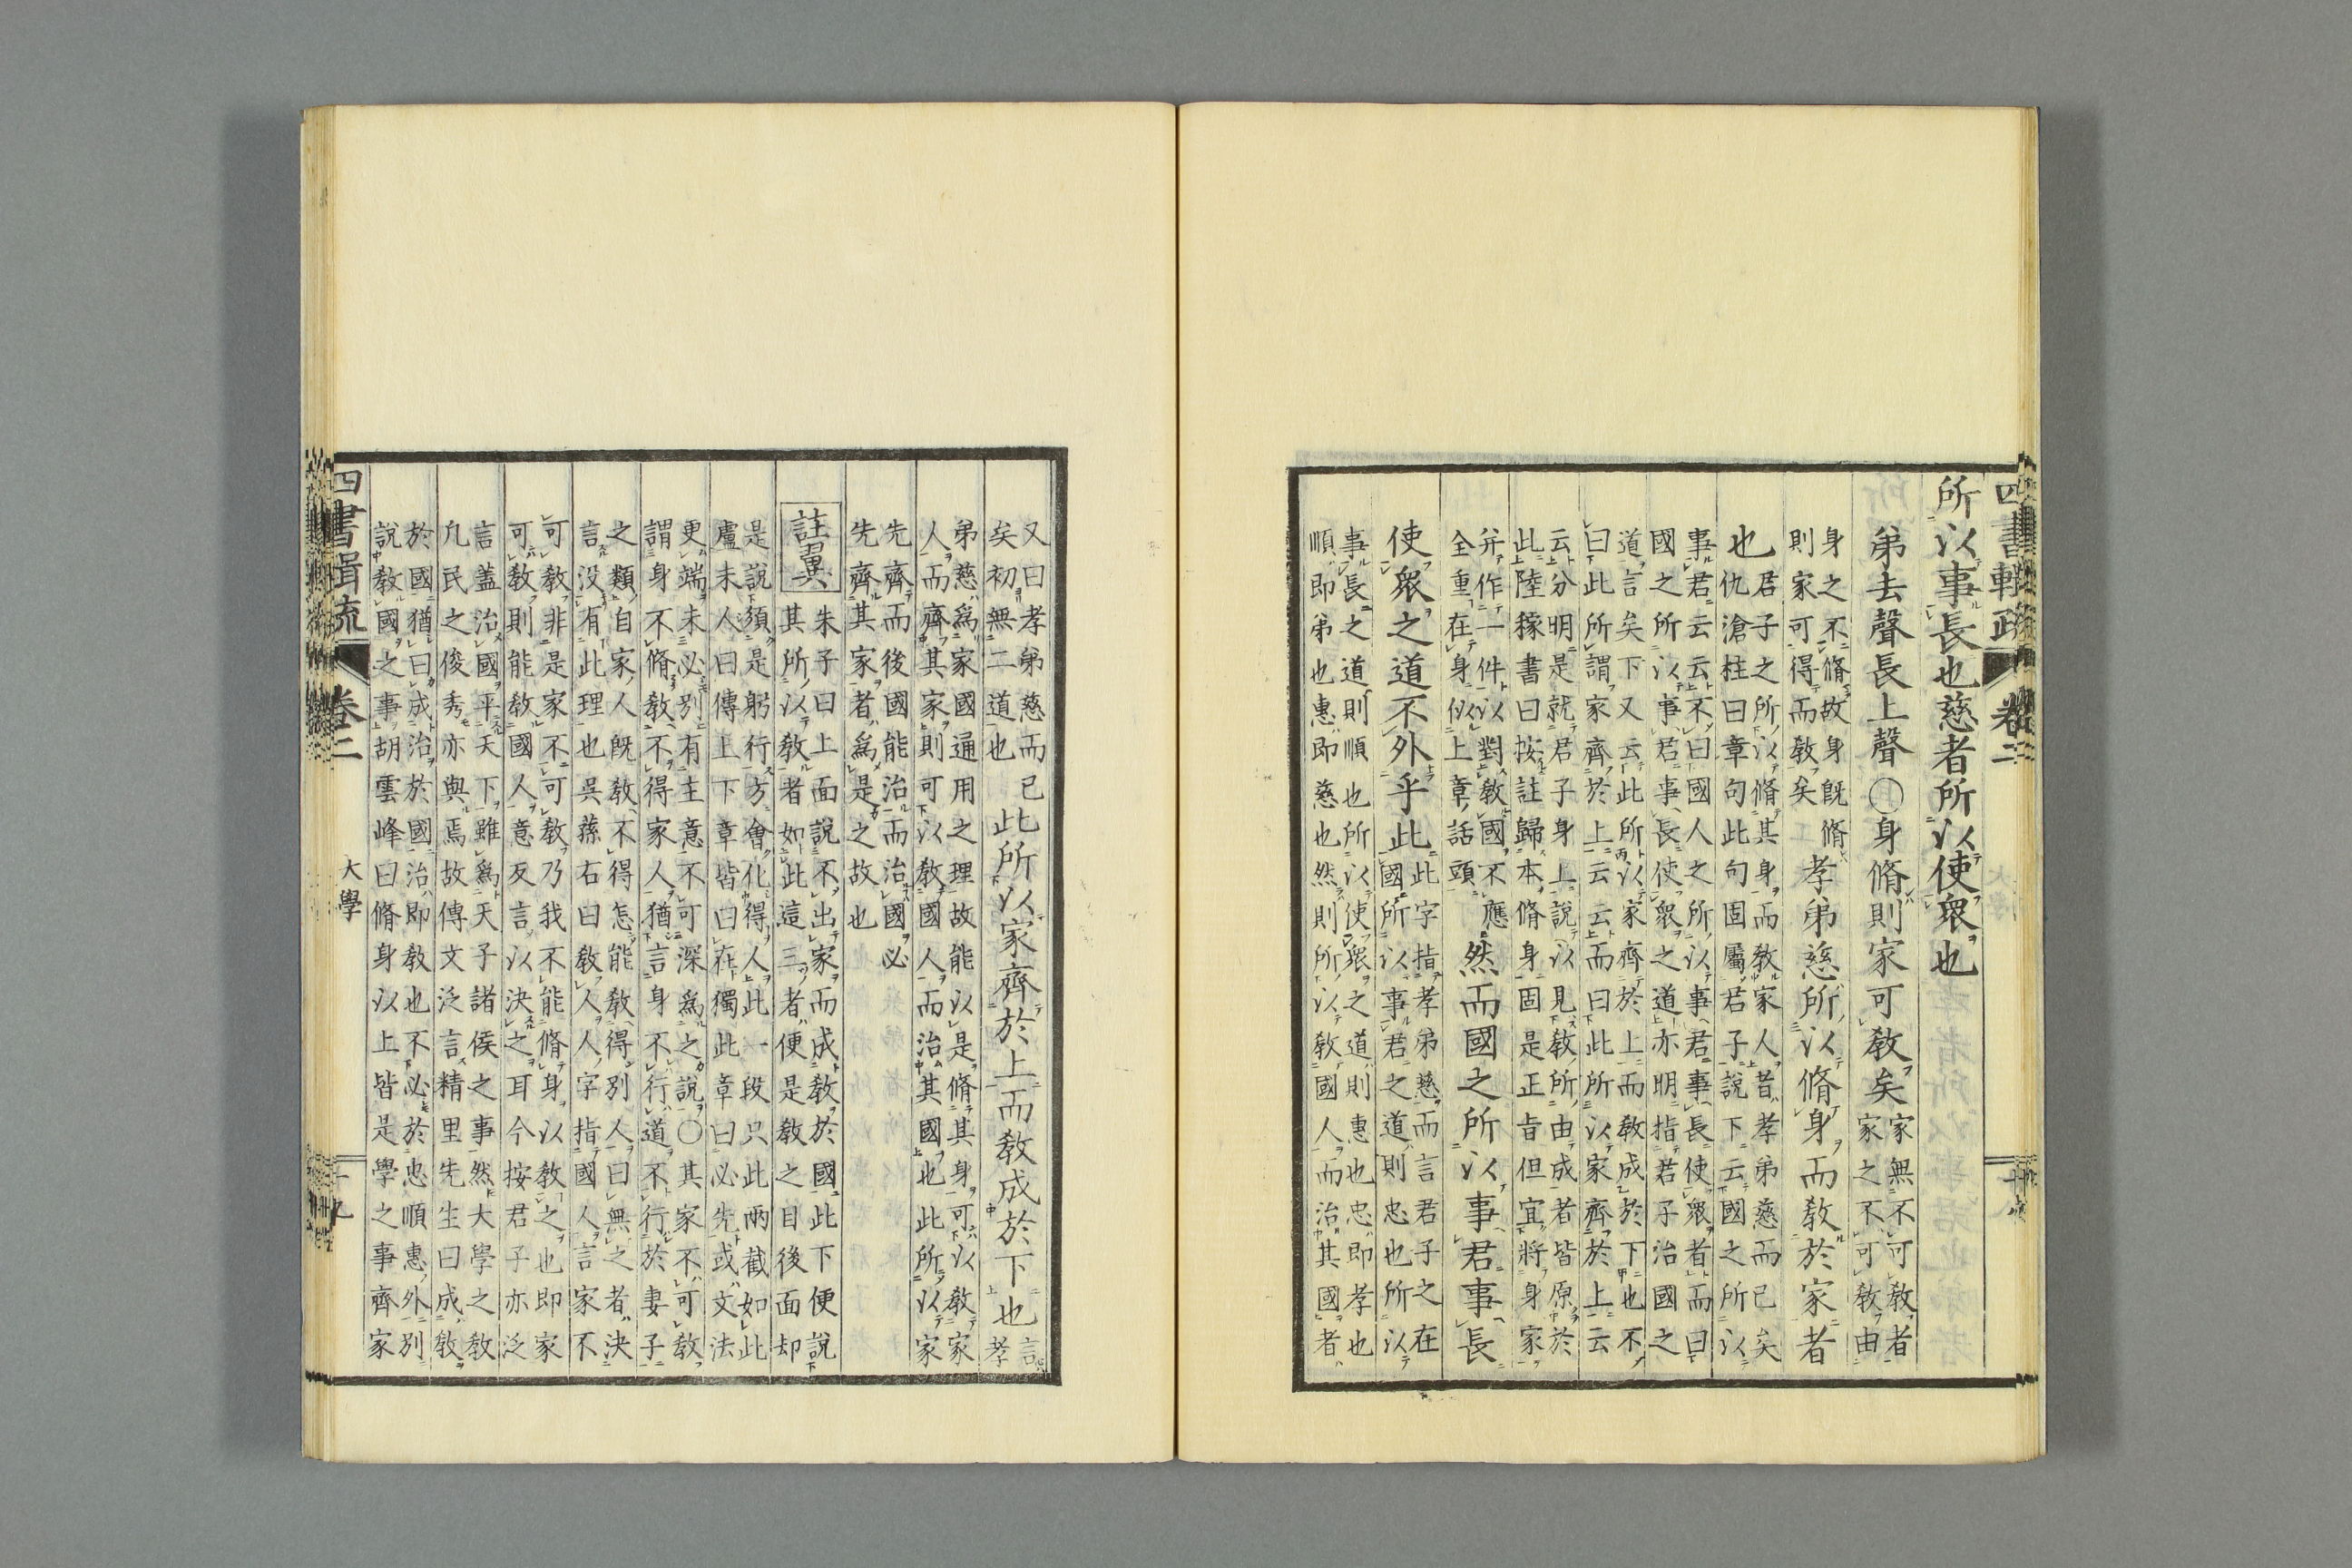 所以事長也慈者所以使衆也
弟去聲長上聲〇身脩則家可敎矣家無不可敎者
家之不可敎由
身之不脩故身既脩
則家可得而敎矣
孝弟慈所以脩身而敎於家者
也
君子之所以脩其身而敎家人者孝弟慈而已矣
仇滄柱曰章句此句固屬君子說下云國之所以
事君云云不曰國人之所以事君事長使衆者而曰
國之所以事君事長使衆之道亦明指君子治國之
道言矣下又云此所以家齊於上而敎成於下也不
曰此所謂家齊於上云云而曰此所以家齊於上云
云分明是就君子身上說以見敎所由成者皆原於
此陸稼書曰按註歸本脩身固是正旨但宜將身家
并作一件以對敎國不應
全重在身似上章話頭
然而國之所以事君事長
使衆之道不外乎此
此字指孝弟慈而言君子之在
國所以事君之道則忠也所以
事長之道則順也所以使衆之道則惠也忠即孝也
順即弟也惠即慈也然則所以敎國人而治其國者
又曰孝弟慈而已
矣初無二道也
此所以家齊於上而敎成於下也
言
孝
弟慈爲家國通用之理故能以是脩其身可以敎家
人而齊其家則可以敎國人而治其國也此所以家
先齊而後國能治而治國必
先齊其家者爲是之故也
註翼
朱子曰上面說不出家而成敎於國此下便說
其所以敎者如此這三者便是敎之目後面却
是說須是躬行方會化得人此一段只此兩截如此
盧未人曰傳上下章皆曰在獨此章曰必先或文法
更端未必別有主意不可深爲之說〇其家不可敎
謂身不脩敎不得家人猶言身不行道不行於妻子
之類自家人既敎不得怎能敎得別人曰無之者決
言没有此理也吳蓀右曰敎人人字指國人言家不
可敎非是家不可敎乃我不能脩身以敎之也即家
可敎則能敎國人意反言以決之耳今按君子亦泛
言蓋治國平天下雖爲天子諸侯之事然大學之敎
凡民之俊秀亦與焉故傳文泛言精里先生曰成敎
於國猶曰成治於國治即敎也不必於忠順惠外別
說敎國之事胡雲峰曰脩身以上皆是學之事齊家
卷二
大學